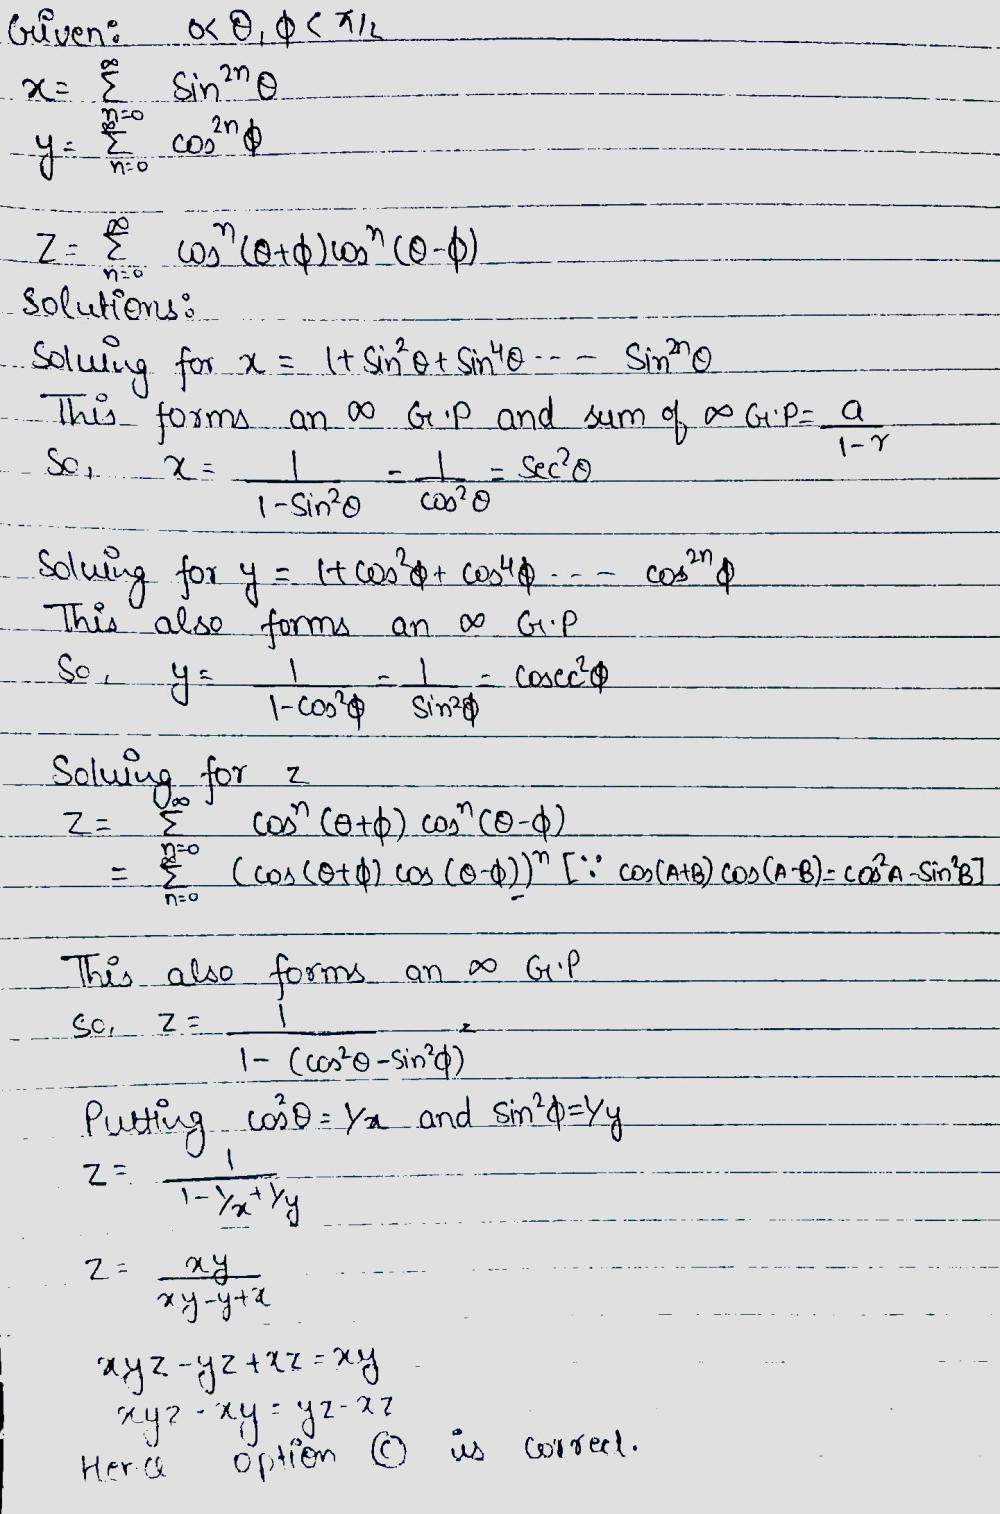 Given: 0< θ, ϕ < π/2
x = ∞ Σ n=0 Sin²ⁿθ
y = ∞ Σ n=0 cos²ⁿϕ
Z = ∞ Σ n=0 cosⁿ(θ+ϕ)cosⁿ(θ-ϕ)
Solutions:
Solving for x = 1+ Sin²θ + Sin⁴θ --- Sin²ⁿθ
This forms an ∞ G.P and sum of ∞ G.P = a/1-r
So, x = 1/1-Sin²θ = 1/cos²θ = Sec²θ
Solving for y = 1+ cos²ϕ + cos⁴ϕ --- cos²ⁿϕ
This also forms an ∞ G.P
So, y = 1/1-cos²ϕ = 1/Sin²ϕ = cosec²ϕ
Solving for z
Z = ∞ Σ n=0 cosⁿ(θ+ϕ) cosⁿ(θ-ϕ)
= ∞ Σ n=0 (cos(θ+ϕ) cos(θ-ϕ))ⁿ [∵ cos(A+B) cos(A-B) = cos²A - Sin²B]
This also forms an ∞ G.P
So, Z = 1/1-(cos²θ - sin²ϕ)
Putting cos²θ = 1/x and sin²ϕ = 1/y
Z = 1/1-1/x+1/y
Z = xy/xy-y+x
xyz - yz + xz = xy
xyz - xy = yz - xz
Hence option Ⓒ is correct.